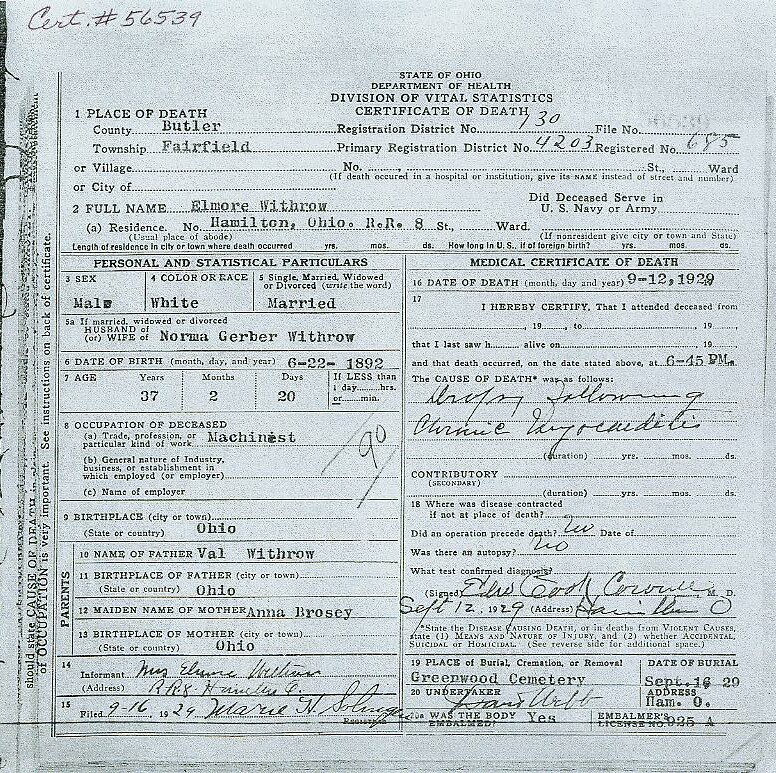 Cert. # 56539
STATE OF OHIO
DEPARTMENT OF HEALTH
DIVISION OF VITAL STATISTICS
CERTIFICATE OF DEATH
1 PLACE OF DEATH
County Butler Registration District No. 130 File No.
Township Fairfield Primary Registration District No. 4203 Registered No. 685
or Village No. St., Ward
(If death occured in a hospital or institution, give its NAME instead of street and number)
or City of
Did Deceased Serve in
2 FULL NAME Elmore Withrow U. S. Navy or Army
(a) Residence. No. Hamilton, Ohio. R.R. 8 St., Ward.
(Usual place of abode) (If nonresident give city or town and State)
Length of residence in city or town where death occurred yrs. mos. ds. How long in U. S., if of foreign birth? yrs. mos. ds.
PERSONAL AND STATISTICAL PARTICULARS
3 SEX 4 COLOR OR RACE 5 Single, Married, Widowed
or Divorced (write the word)
Male White Married
5a If married, widowed or divorced
HUSBAND of
(or) WIFE of Norma Gerber Withrow
6 DATE OF BIRTH (month, day, and year) 6-22- 1892
7 AGE Years Months Days If LESS than
1 day hrs.
or min.
37 2 20
8 OCCUPATION OF DECEASED
(a) Trade, profession, or
particular kind of work Machinist
90
(b) General nature of Industry,
business, or establishment in
which employed (or employer)
(c) Name of employer
9 BIRTHPLACE (city or town)
(State or country) Ohio
PARENTS
10 NAME OF FATHER Val Withrow
11 BIRTHPLACE OF FATHER (city or town)
(State or country) Ohio
12 MAIDEN NAME OF MOTHER Anna Brosey
13 BIRTHPLACE OF MOTHER (city or town)
(State or country) Ohio
14
Informant Mrs Elmore Withrow
(Address) R.R.8. Hamilton O.
15
Filed 9-16, 1929 Marie H.
Registrar
MEDICAL CERTIFICATE OF DEATH
16 DATE OF DEATH (month, day and year) 9-12, 1929
17
I HEREBY CERTIFY, That I attended deceased from
, 19 , to , 19
that I last saw h alive on , 19
and that death occurred, on the date stated above, at 6-45 PM.
The CAUSE OF DEATH* was as follows:
Dropsy following
Chronic Myocarditis
(duration) yrs. mos. ds.
CONTRIBUTORY
(SECONDARY)
(duration) yrs. mos. ds.
18 Where was disease contracted
if not at place of death?
Did an operation precede death? no Date of
Was there an autopsy? no
What test confirmed diagnosis?
(Signed) Edw Cook Coroner M. D.
Sept 12, 1929 (Address) Hamilton O
*State the DISEASE CAUSING DEATH, or in deaths from VIOLENT CAUSES,
state (1) MEANS AND NATURE OF INJURY, and (2) whether ACCIDENTAL,
SUICIDAL or HOMICIDAL. (See reverse side for additional space.)
19 PLACE of Burial, Cremation, or Removal DATE OF BURIAL
Greenwood Cemetery Sept. 16 29
20 UNDERTAKER ADDRESS
David Webb Ham. O.
20a WAS THE BODY
EMBALMED? Yes EMBALMER'S
LICENSE NO. 925 A
should state CAUSE OF DEATH in
of OCCUPATION is very important. See instructions on back of certificate.